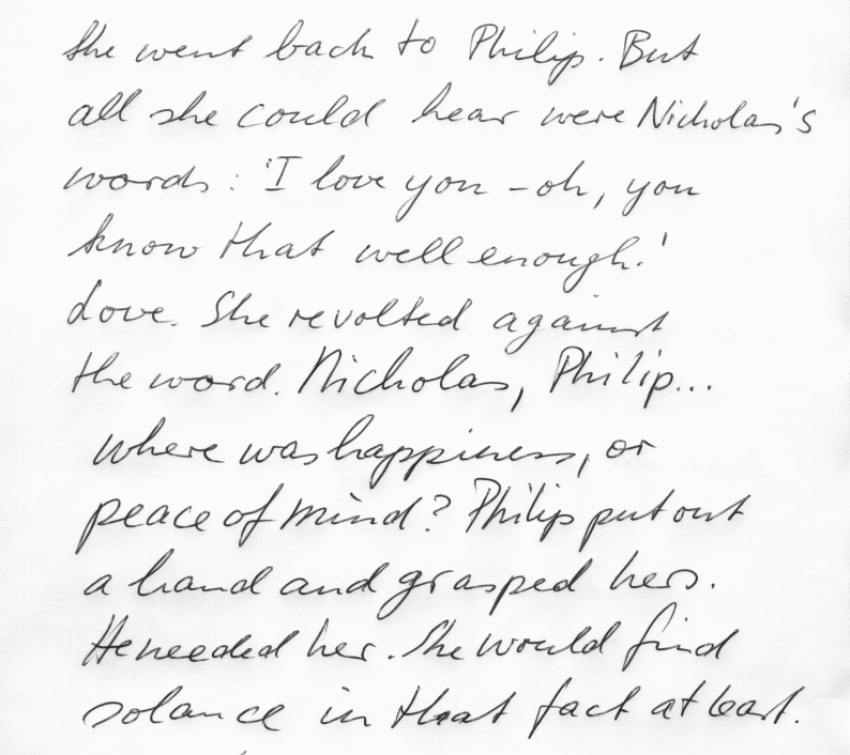 She went back to Philip. But
all she could hear were Nicholas's
words: 'I love you - oh, you
know that well enough.'
Love. She revolted against
the word. Nicholas, Philip...
where was happiness, or
peace of mind? Philip put out
a hand and grasped hers.
He needed her. She would find
solance in that fact at least.